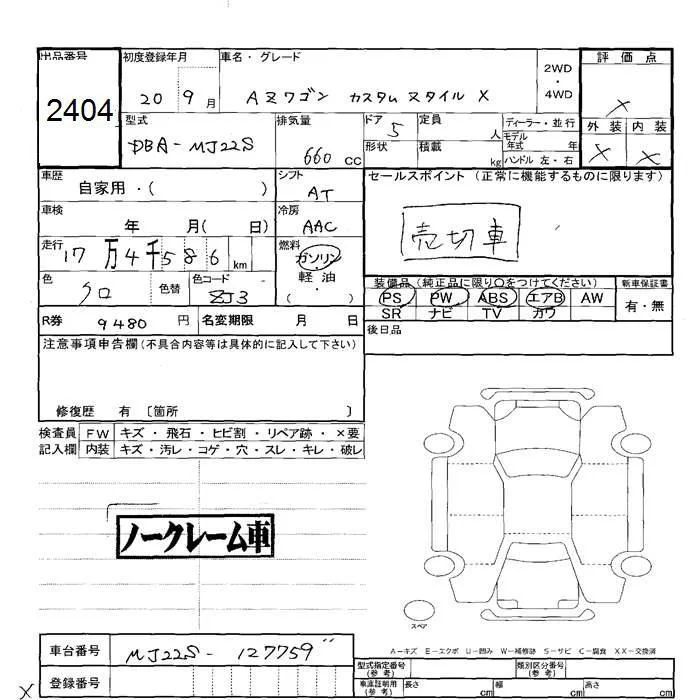 出品番号 初度登録年月 車名・グレード 評価点
2404 20 9月 AZワゴン カスタムスタイル X 2WD・4WD X
型式 排気量 ドア 定員 ディーラー・並行 外装 内装
DBA-MJ22S 660 cc 5 人 モデル年式 年 X X
形状 積載 kg ハンドル 左・右
車歴 シフト セールスポイント(正常に機能するものに限ります)
自家用・( ) AT
車検 冷房
年 月( 日) AAC 売切車
走行 燃料
17万4千586km ガソリン・軽油・( )
色 色替 色コード 装備品(純正品に限り○をつけてください) 新車保証書
クロ ZJ3 PS PW ABS エアB AW 有・無
SR ナビ TV カワ
R券 9480円 名変期限 月 日 後日品
注意事項申告欄(不具合内容等は具体的に記入して下さい)
修復歴 有 〔箇所 〕
検査員 FW キズ・飛石・ヒビ割・リペア跡・×要
記入欄 内装 キズ・汚レ・コゲ・穴・スレ・キレ・破レ
ノークレーム車
スペア
A-キズ E-エクボ U-凹み W-補修跡 S-サビ C-腐食 XX-交換済
車台番号 MJ22S-127759 型式指定番号(参考) 類別区分番号(参考)
登録番号 車庫証明用(参考) 長さ cm 幅 cm 高さ cm
X